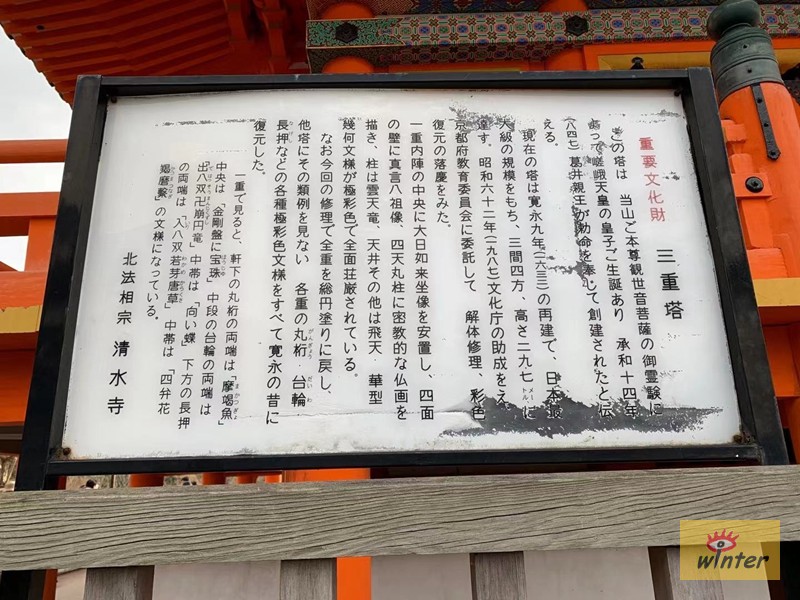 重要文化財
三重塔
この塔は 当山ご本尊観世音菩薩の御霊験に
よって嵯峨天皇の皇子ご生誕あり 承和十四年
(八四七)葛井親王が勅命を奉じて創建されたと伝
える。
現在の塔は寛永九年(一六三三)の再建で、日本最
大級の規模をもち、三間四方、高さ二九七メートルに
達す。昭和六十二年(一九八七)文化庁の助成をえ
京都府教育委員会に委託して 解体修理、彩色
復元の落慶をみた。
一重内陣の中央に大日如来坐像を安置し、四面
の壁に真言八祖像、四天丸柱に密教的な仏画を
描き、柱は雲天竜、天井その他は飛天 華型
幾何文様が極彩色で全面荘厳されている。
なお今回の修理で全重を総円塗りに戻し、
他塔にその類例を見ない 各重の丸桁 台輪
長押などの各種極彩色文様をすべて寛永の昔に
復元した。
一重で見ると、軒下の丸桁の両端は「摩竭魚」
中央は「金剛盤に宝珠」中段の台輪の両端は
「出八双卍崩円竜」中帯は「向い蝶」下方の長押
の両端は「入八双若芽唐草」中帯は「四弁花
羯磨繋」の文様になっている。
北法相宗 清水寺
winter